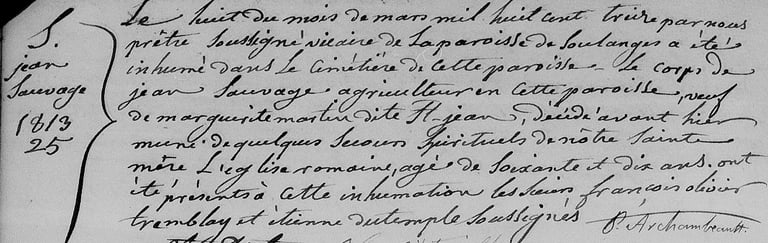 S.
jean
Sauvage
1813
25
Le huit du mois de mars mil huit cent treize par nous
prêtre soussigné vicaire de La paroisse de Soulanges a été
inhumé dans Le cimétière de cette paroisse - Le corps de
jean Sauvage agriculteur en cette paroisse, veuf
de marguerite martin dite St. jean, décédé avant hier
muni de quelques secours spirituels de nôtre Sainte
mère L'eglise romaine, agé de soixante et dix ans. ont
été présents à cette inhumation les sieurs françois olivier
tremblay et étienne dutemple soussignés P. Archambeault